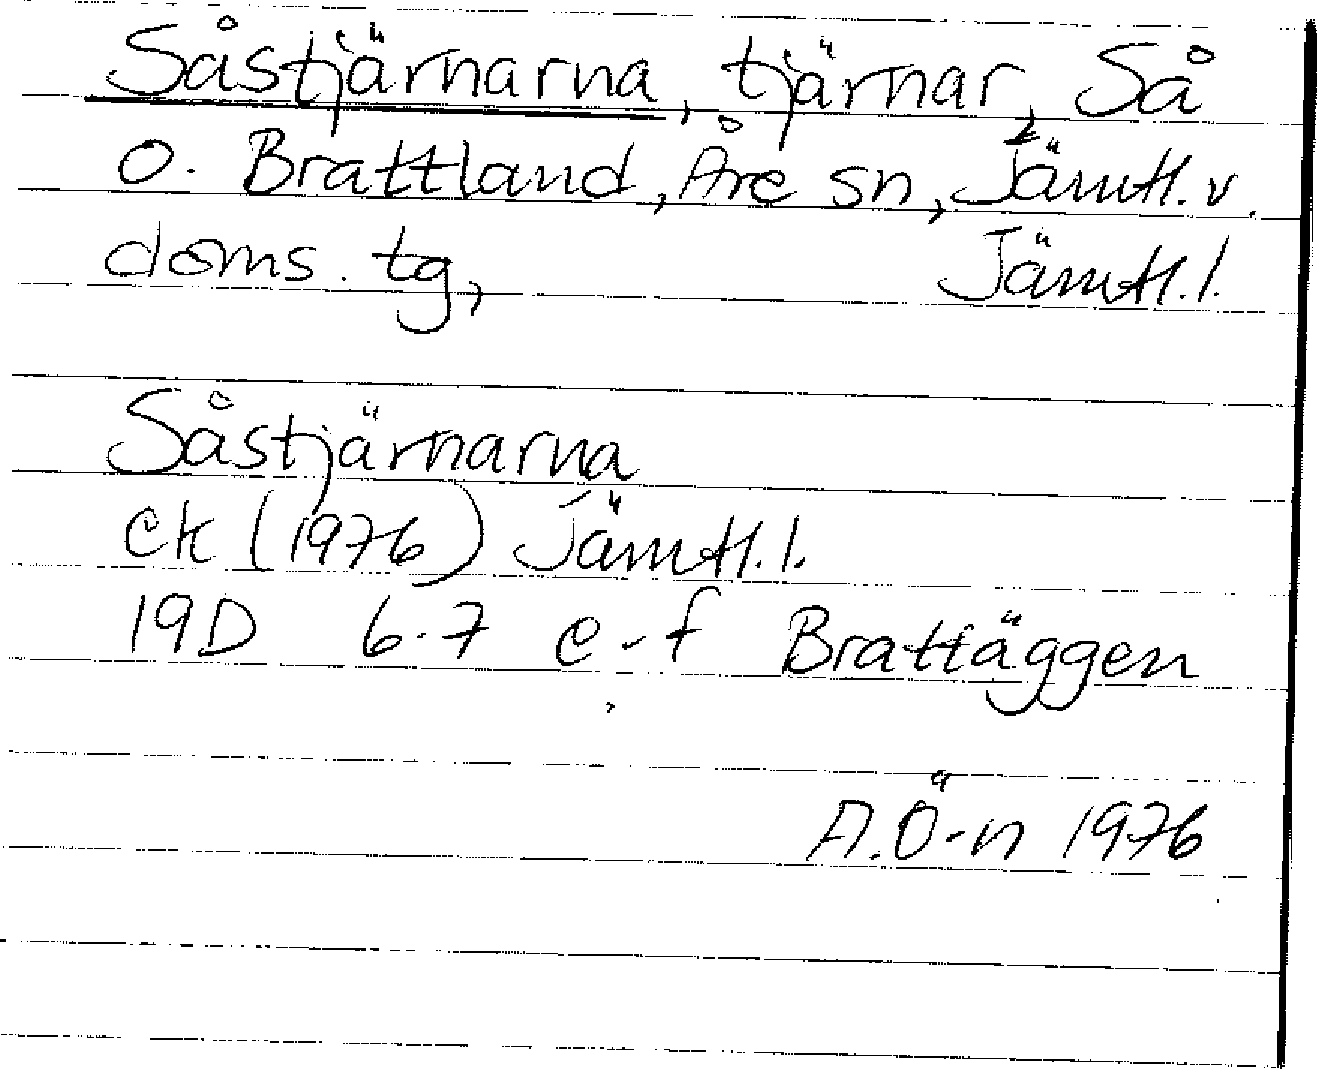 Såstjärnarna, tjärnar, Så
o. Brattland, Åre sn, Jämtl. v.
doms. tg, Jämtl. l.
Såstjärnarna
ek (1976) Jämtl. l.
19D 6-7 e-f Brattäggen
A.Ö-n 1976